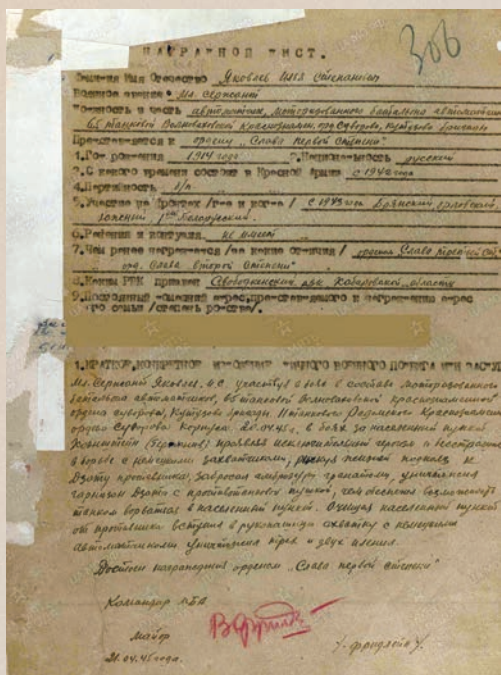 306
НАГРАДНОЙ ЛИСТ.
Фамилия Имя Отечество Яковлев Илья Степанович
Военное звание Мл. Сержант
Должность и часть автоматчик, моторизованного батальона автоматчиков
65 танковой Волновахской Краснознамен, орд. Суворова, Кутузова бригады
Представляется к ордену "Слава первой степени"
1. Год рождения 1914 года 2. Национальность русский
3. С какого времени состоит в Красной Армии с 1942 года
4. Партийность б/п
5. Участие на фронтах /где и когда/ с 1943 года Брянский,
1ый Белорусский.
6. Ранения и контузия не имеет
7. Чем ранее награжден /за какие отличия/ орден Слава третьей ст.
орд. Слава второй степени"
8. Каким РВК призван Свободненский, рвк Хабаровской области
9. Постоянный домашний адрес, представляемого к награждению и адрес
его семьи /степень родства/.
1. КРАТКОЕ, КОНКРЕТНОЕ ИЗЛОЖЕНИЕ ЛИЧНОГО БОЕВОГО ПОДВИГА ИЛИ ЗАСЛУГ
Мл. Сержант Яковлев И.С. участвуя в боях в составе моторизованного
батальона автоматчиков, 65 танковой Волновахской краснознаменной
ордена Суворова, Кутузова бригады. 11 танкового Радомского Краснознамен
ордена Суворова Корпуса. 20.04.45г. в боях за населенный пункт
(Германия) проявлял исключительный героизм и бесстрашие
в борьбе с немецкими захватчиками, рискуя жизней подполз к
Дзоту противника, забросал амбразуру гранатами, уничтожив
гарнизон Дзота с противотанковой пушкой, чем обеспечил возможность
танкам ворваться в населенный пункт. Очищая населенный пункт
от противника вступил в рукопашную схватку с немецкими
автоматчиками уничтожив трех и двух пленил.
Достоин награждения орденом "Слава первой степени"
Командир МБА
Майор
21.04.45 года.